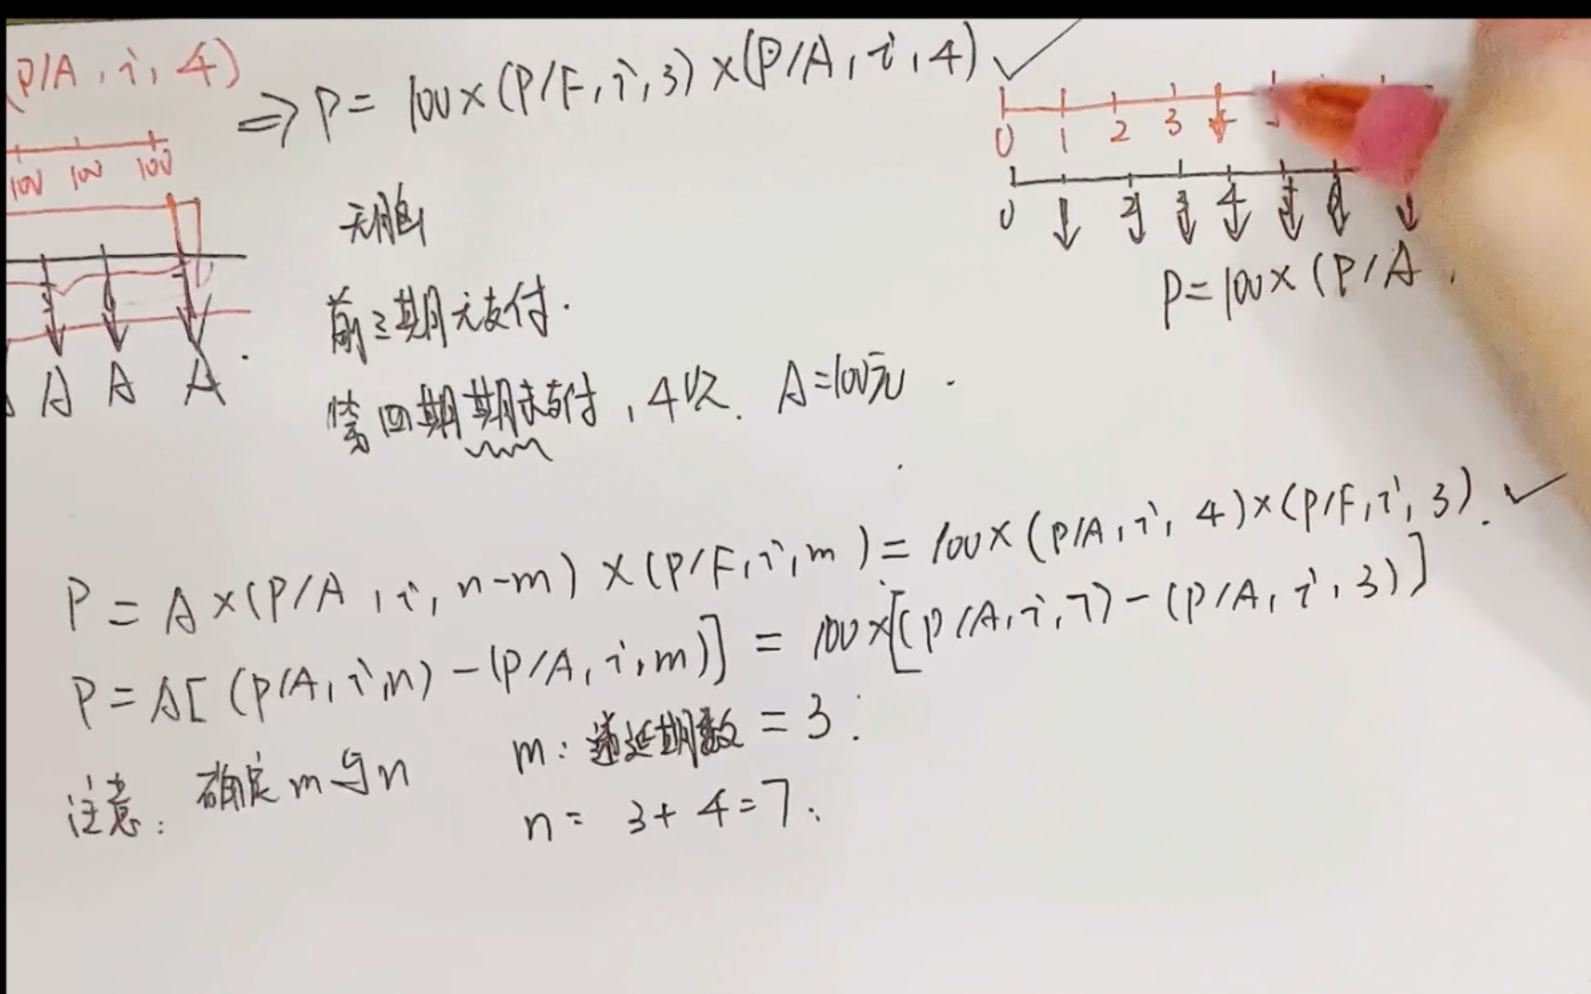 (P/A, i, 4)
⇒ P = 100×(P/F, i, 3)×(P/A, i, 4) ✓
100 100 100
0 1 2 3 4
0 2 3 4
P=100×(P/A
前三期无支付.
第四期期末支付, 4次. A=100元.
A A A
P = A×(P/A, i, n-m)×(P/F, i, m) = 100×(P/A, i, 4)×(P/F, i, 3). ✓
P = A[(P/A, i, n) - (P/A, i, m)] = 100×[(P/A, i, 7) - (P/A, i, 3)]
注意: 确定m与n
m: 递延期数 = 3.
n = 3+4=7.